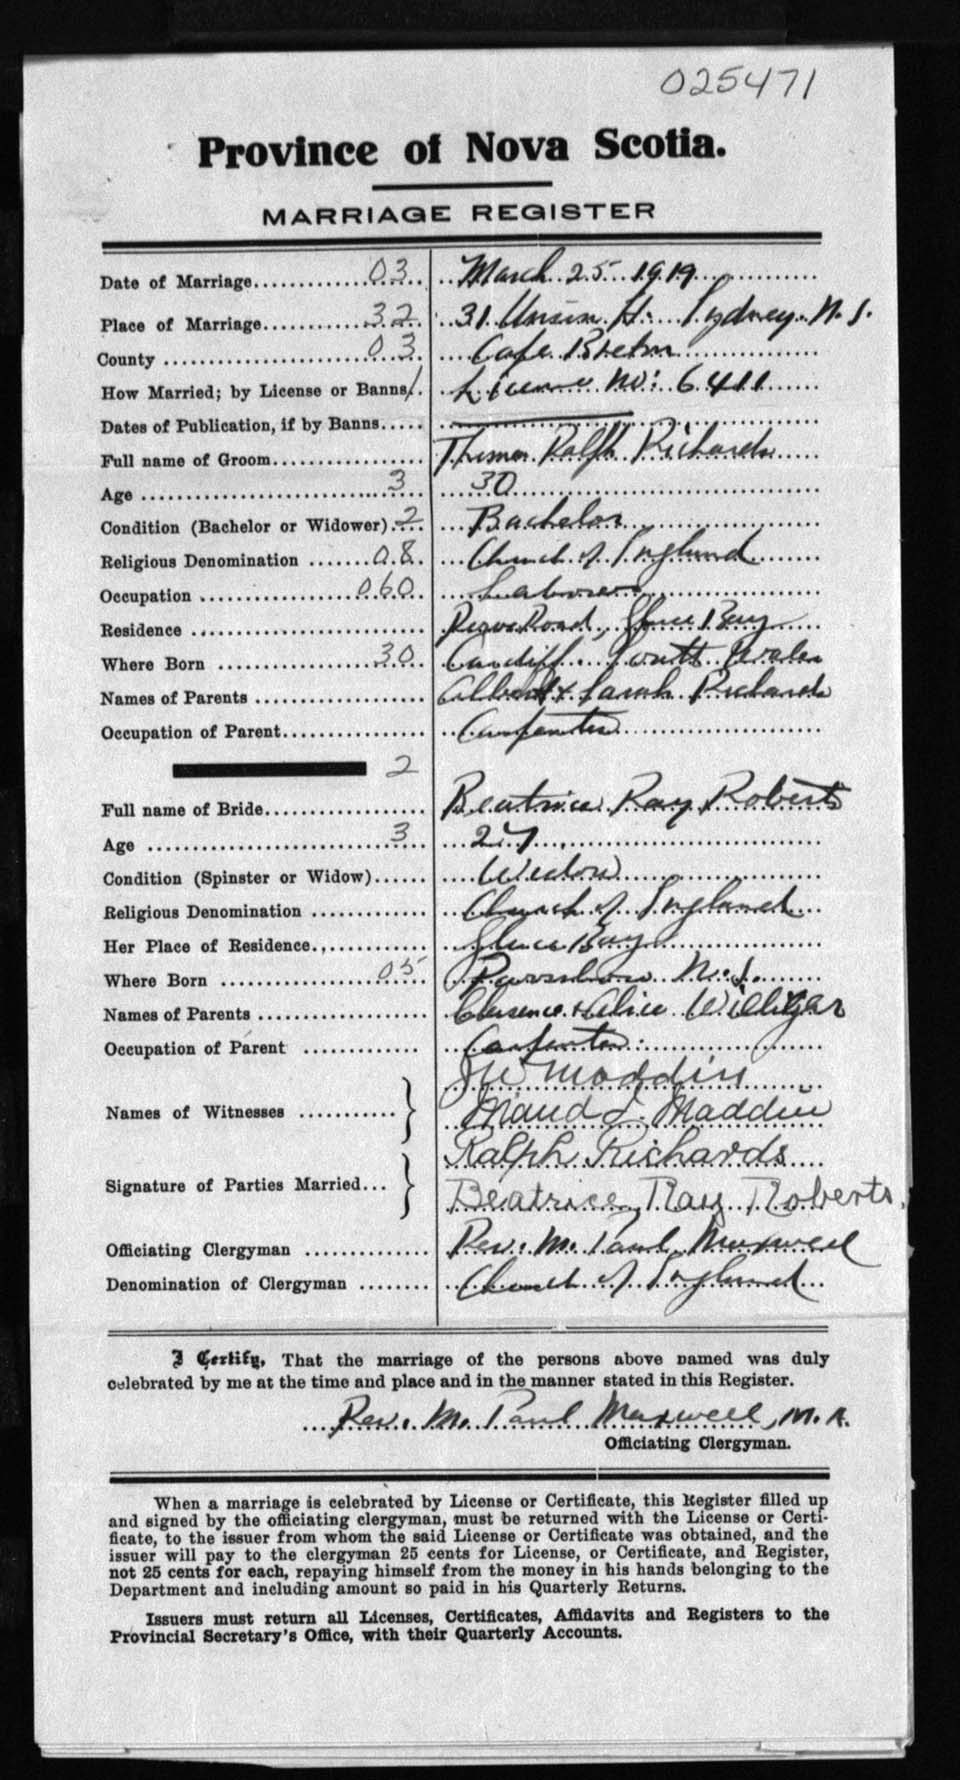 025471
Province of Nova Scotia.
MARRIAGE REGISTER
Date of Marriage 03 March 25 1919
Place of Marriage 32 31 Union St. Sydney N.S.
County 03 Cape Breton
How Married; by License or Banns 1 License No: 6411
Dates of Publication, if by Banns
Full name of Groom Thomas Ralph Richards
Age 3 30
Condition (Bachelor or Widower) 2 Bachelor
Religious Denomination 08 Church of England
Occupation 060 Laborer
Residence Reserve Road, Glace Bay
Where Born 30 Cardiff South Wales
Names of Parents Albert & Sarah Richards
Occupation of Parent Carpenter
2
Full name of Bride Beatrice Ray Roberts
Age 3 27
Condition (Spinster or Widow) Widow
Religious Denomination Church of England
Her Place of Residence Glace Bay
Where Born 05 Parrsboro N.S.
Names of Parents Clarence & Alice Willigar
Occupation of Parent Carpenter
Names of Witnesses } JW Maddin
Maud L. Maddin
Signature of Parties Married } Ralph Richards
Beatrice Ray Roberts.
Officiating Clergyman Rev. M. Paul Maxwell
Denomination of Clergyman Church of England
I Certify, That the marriage of the persons above named was duly
celebrated by me at the time and place and in the manner stated in this Register.
Rev. M. Paul Maxwell, M.A.
Officiating Clergyman.
When a marriage is celebrated by License or Certificate, this Register filled up
and signed by the officiating clergyman, must be returned with the License or Certi-
ficate, to the issuer from whom the said License or Certificate was obtained, and the
issuer will pay to the clergyman 25 cents for License, or Certificate, and Register,
not 25 cents for each, repaying himself from the money in his hands belonging to the
Department and including amount so paid in his Quarterly Returns.
Issuers must return all Licenses, Certificates, Affidavits and Registers to the
Provincial Secretary's Office, with their Quarterly Accounts.